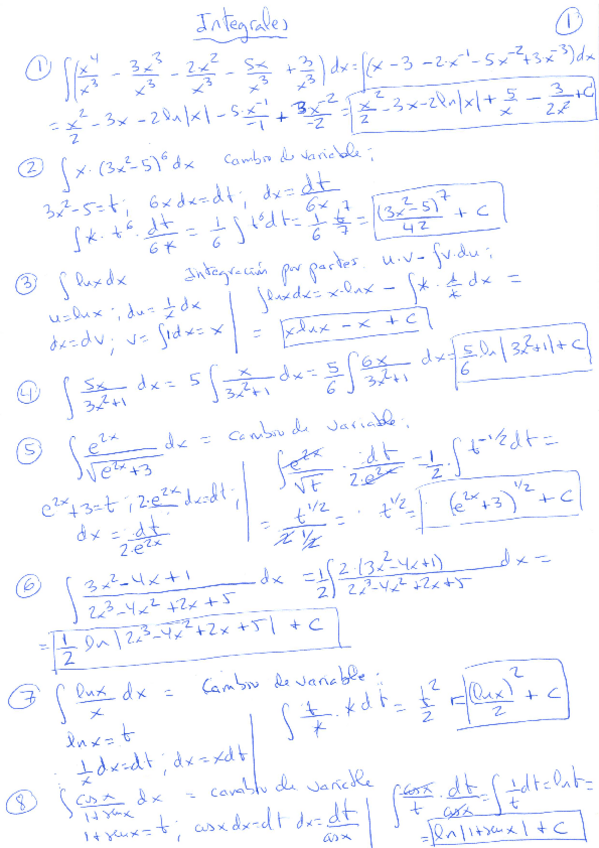 Integrales 1
① ∫(x⁴/x³ - 3x³/x³ - 2x²/x³ - 5x/x³ + 3/x³) dx = ∫(x - 3 - 2·x⁻¹ - 5x⁻² + 3x⁻³) dx
= x²/2 - 3x - 2 ln|x| - 5·x⁻¹/-1 + 3x⁻²/-2 = x²/2 - 3x - 2 ln|x| + 5/x - 3/2x² + C
② ∫ x·(3x²-5)⁶ dx Cambio de variable;
3x²-5=t; 6x dx=dt; dx = dt/6x
∫ x·t⁶·dt/6x = 1/6 ∫ t⁶ dt = 1/6 t⁷/7 = (3x²-5)⁷/42 + C
③ ∫ lnx dx Integración por partes. u·v - ∫v·du;
u=lnx; du=1/x dx | ∫lnxdx = x·lnx - ∫x·1/x dx =
dx=dv; v=∫1dx=x | = x lnx - x + C
④ ∫ 5x/3x²+1 dx = 5 ∫ x/3x²+1 dx = 5/6 ∫ 6x/3x²+1 dx = 5/6 ln|3x²+1| + C
⑤ ∫ e²ˣ/√e²ˣ+3 dx = cambio de variable;
e²ˣ+3=t; 2·e²ˣ dx=dt; | ∫ e²ˣ/√t · dt/2·e²ˣ = 1/2 ∫ t⁻¹/² dt =
dx = dt/2·e²ˣ | = t¹/²/2·1/2 = t¹/² = (e²ˣ+3)¹/² + C
⑥ ∫ 3x²-4x+1/2x³-4x²+2x+5 dx = 1/2 ∫ 2·(3x²-4x+1)/2x³-4x²+2x+5 dx =
= 1/2 ln|2x³-4x²+2x+5| + C
⑦ ∫ lnx/x dx = Cambio de variable;
lnx = t | ∫ t/x · x dt = t²/2 = (lnx)²/2 + C
1/x dx=dt; dx=xdt
⑧ ∫ cosx/1+senx dx = cambio de variable | ∫ cosx/t · dt/cosx = ∫ 1/t dt = lnt =
1+senx=t; cosx dx=dt dx = dt/cosx | = ln|1+senx| + C